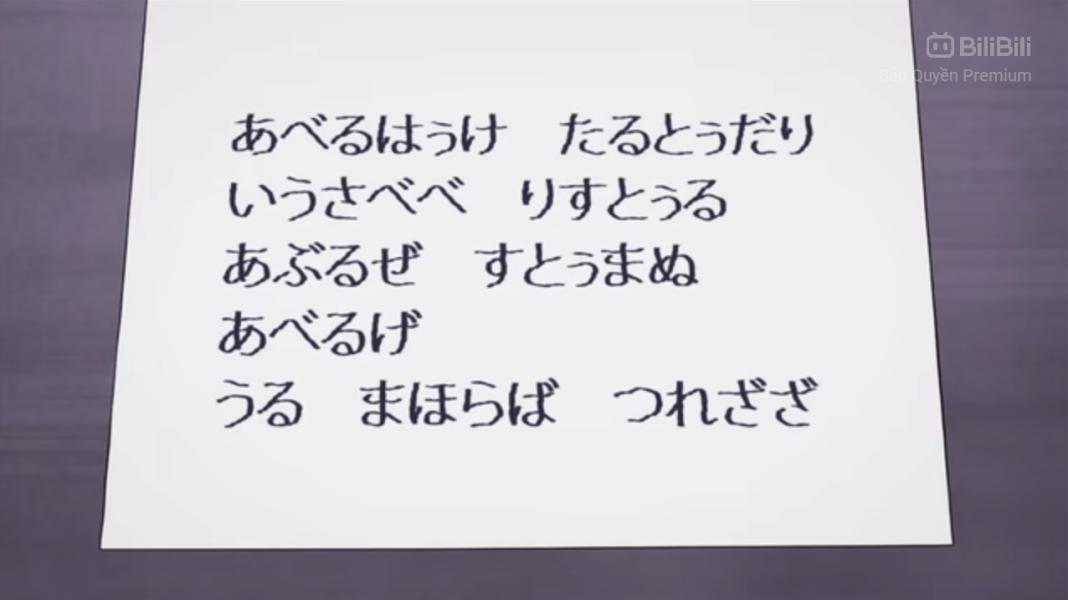 BiliBili
Bản Quyền Premium
あべるはぅけ　たるとぅだり
いうさべべ　りすとぅる
あぶるぜ　すとぅまぬ
あべるげ
うる　まほらば　つれざざ